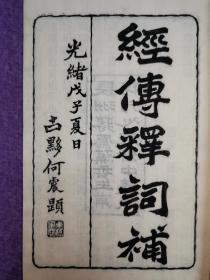 經傳釋詞補
光緒戊子夏日
古黟何震題